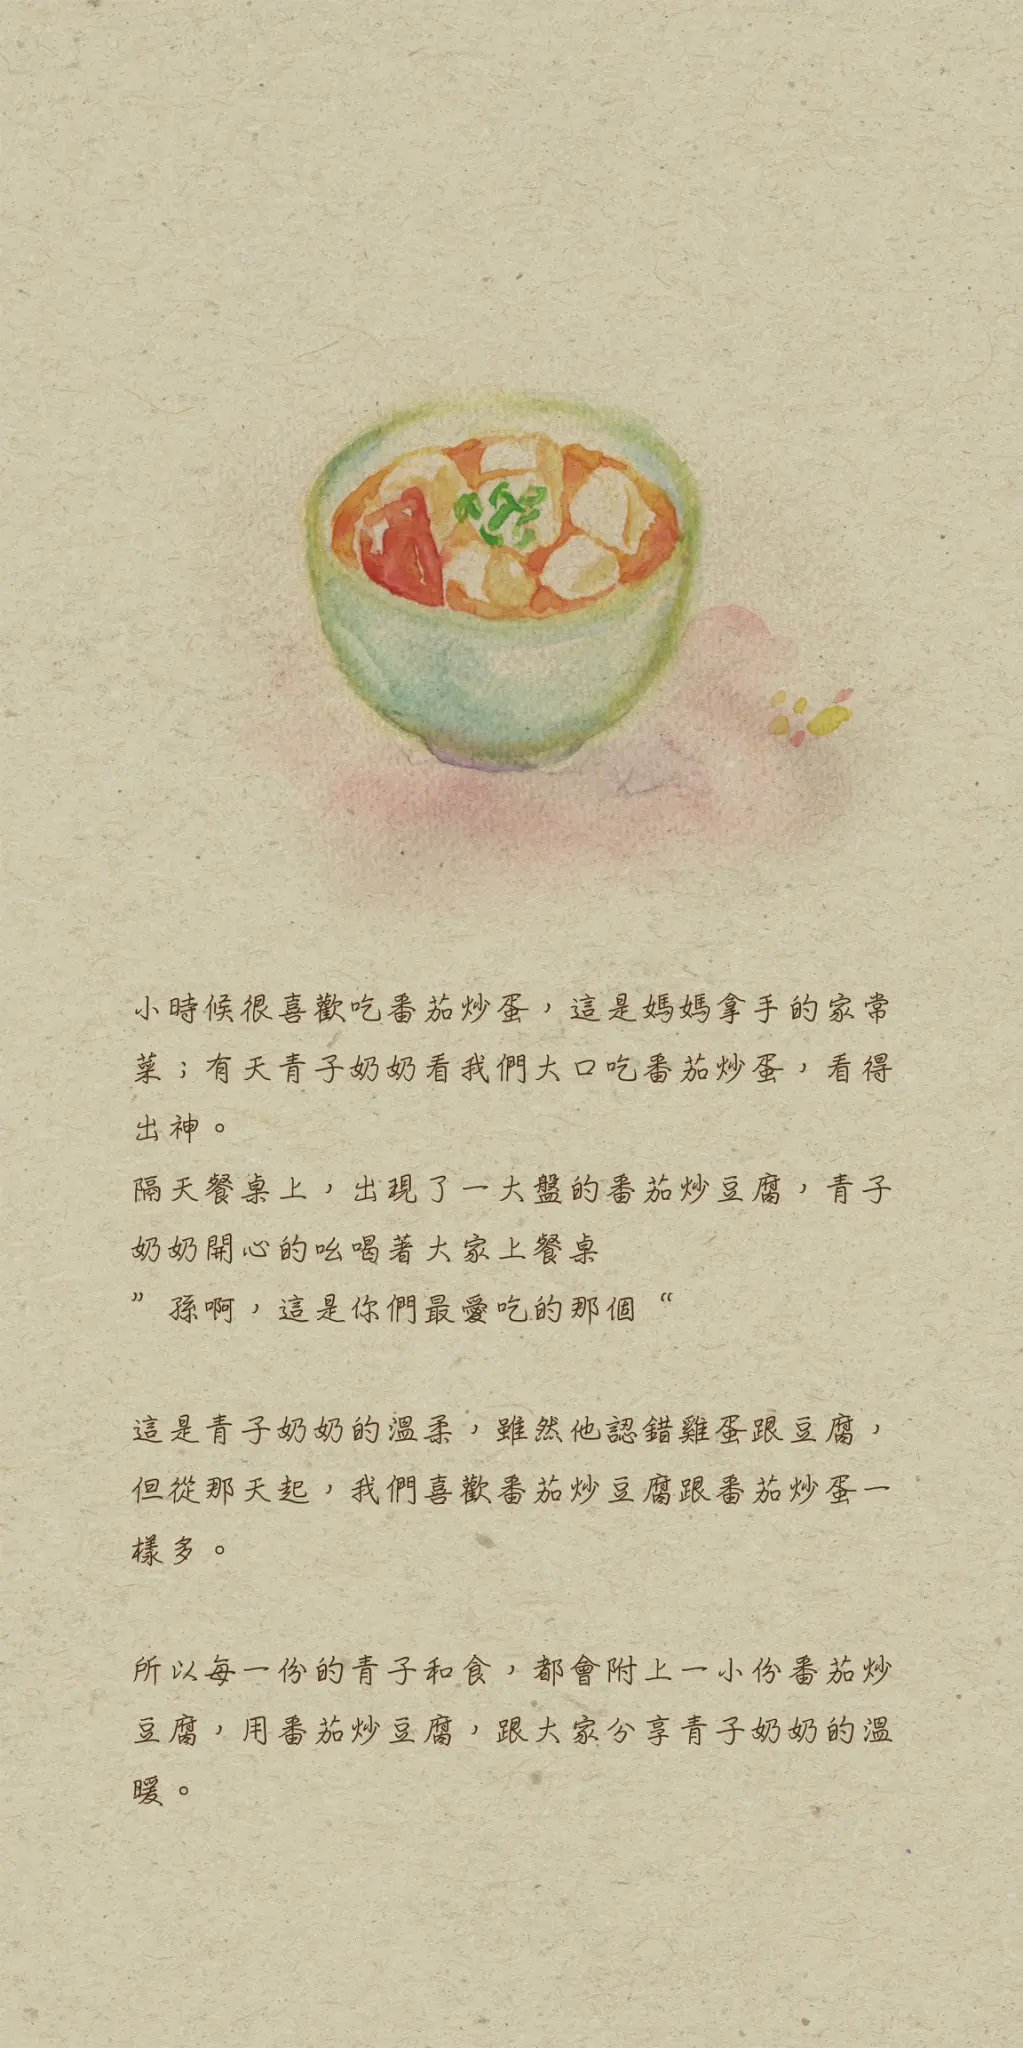 小時候很喜歡吃番茄炒蛋，這是媽媽拿手的家常
菜；有天青子奶奶看我們大口吃番茄炒蛋，看得
出神。
隔天餐桌上，出現了一大盤的番茄炒豆腐，青子
奶奶開心的吆喝著大家上餐桌
”孫啊，這是你們最愛吃的那個“
這是青子奶奶的溫柔，雖然他認錯雞蛋跟豆腐，
但從那天起，我們喜歡番茄炒豆腐跟番茄炒蛋一
樣多。
所以每一份的青子和食，都會附上一小份番茄炒
豆腐，用番茄炒豆腐，跟大家分享青子奶奶的溫
暖。